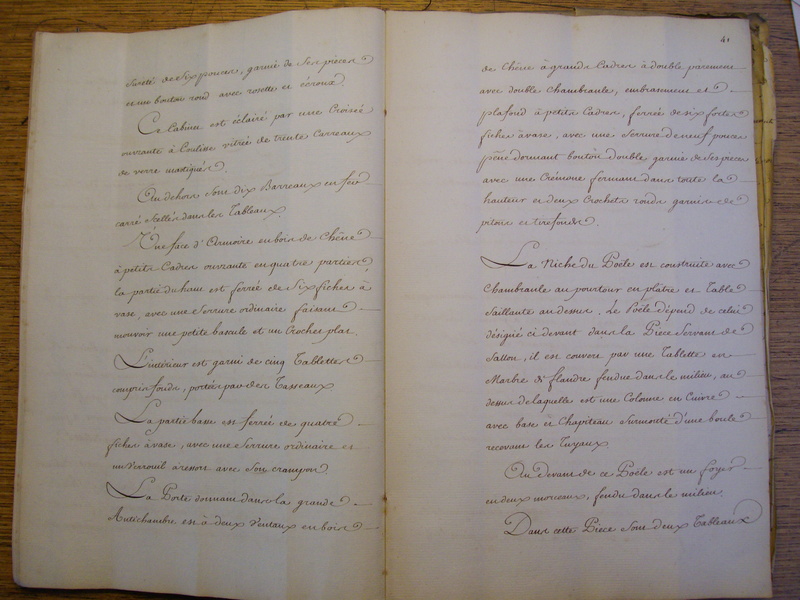 sureté de Six pouces, garnie de Ses pièces
et un bouton rond avec rosette et écroux.
Ce Cabinet est éclairé par une Croisée
ouvrante à Coulisse vitrée de trente Carreaux
de verre mastiqués.
Au dehors sont dix Barreaux en fer
carré scellés dans les Tableaux.
Une face d'Armoire en bois de Chêne
à petits Cadres ouvrante en quatre parties,
la partie du haut est ferrée de Six fiches à
vase, avec une Serrure ordinaire faisant
mouvoir une petite bascule et un Crochet plat.
L'intérieur est garni de cinq Tablettes
compris fonds, portées par des Tasseaux
La partie basse est ferrée de quatre
fiches à vase, avec une Serrure ordinaire et
un verrouil à ressort avec Son crampon.
La Porte donnant dans la grande
Antichambre est à deux Ventaux en bois
41
de Chêne à grands Cadres à double parement
avec double Chambranle, embrasement et
plafond à petits Cadres, ferrée de six fortes
fiches à vase, avec une Serrure de neuf pouces
pêne dormant bouton double garnie de Ses pièces
avec une Crémone fermant dans toute la
hauteur et deux Crochets ronds garnis de
pitons et tirefonds.
La Niche du Poële est construite avec
Chambranle au pourtour en plâtre et Table
Saillante au dessus. Le Poële dépend de celui
désigné ci devant dans la Piece Servant de
Sallon, il est couvert par une Tablette en
Marbre de flandre fendue dans le milieu, au
dessus de laquelle est une Colonne en Cuivre
avec base et Chapiteau Surmonté d'une boule
recevant les Tuyaux
Au devant de ce Poële est un foyer
en deux morceaux, fendu dans le milieu.
Dans cette Piece Sont deux Tableaux